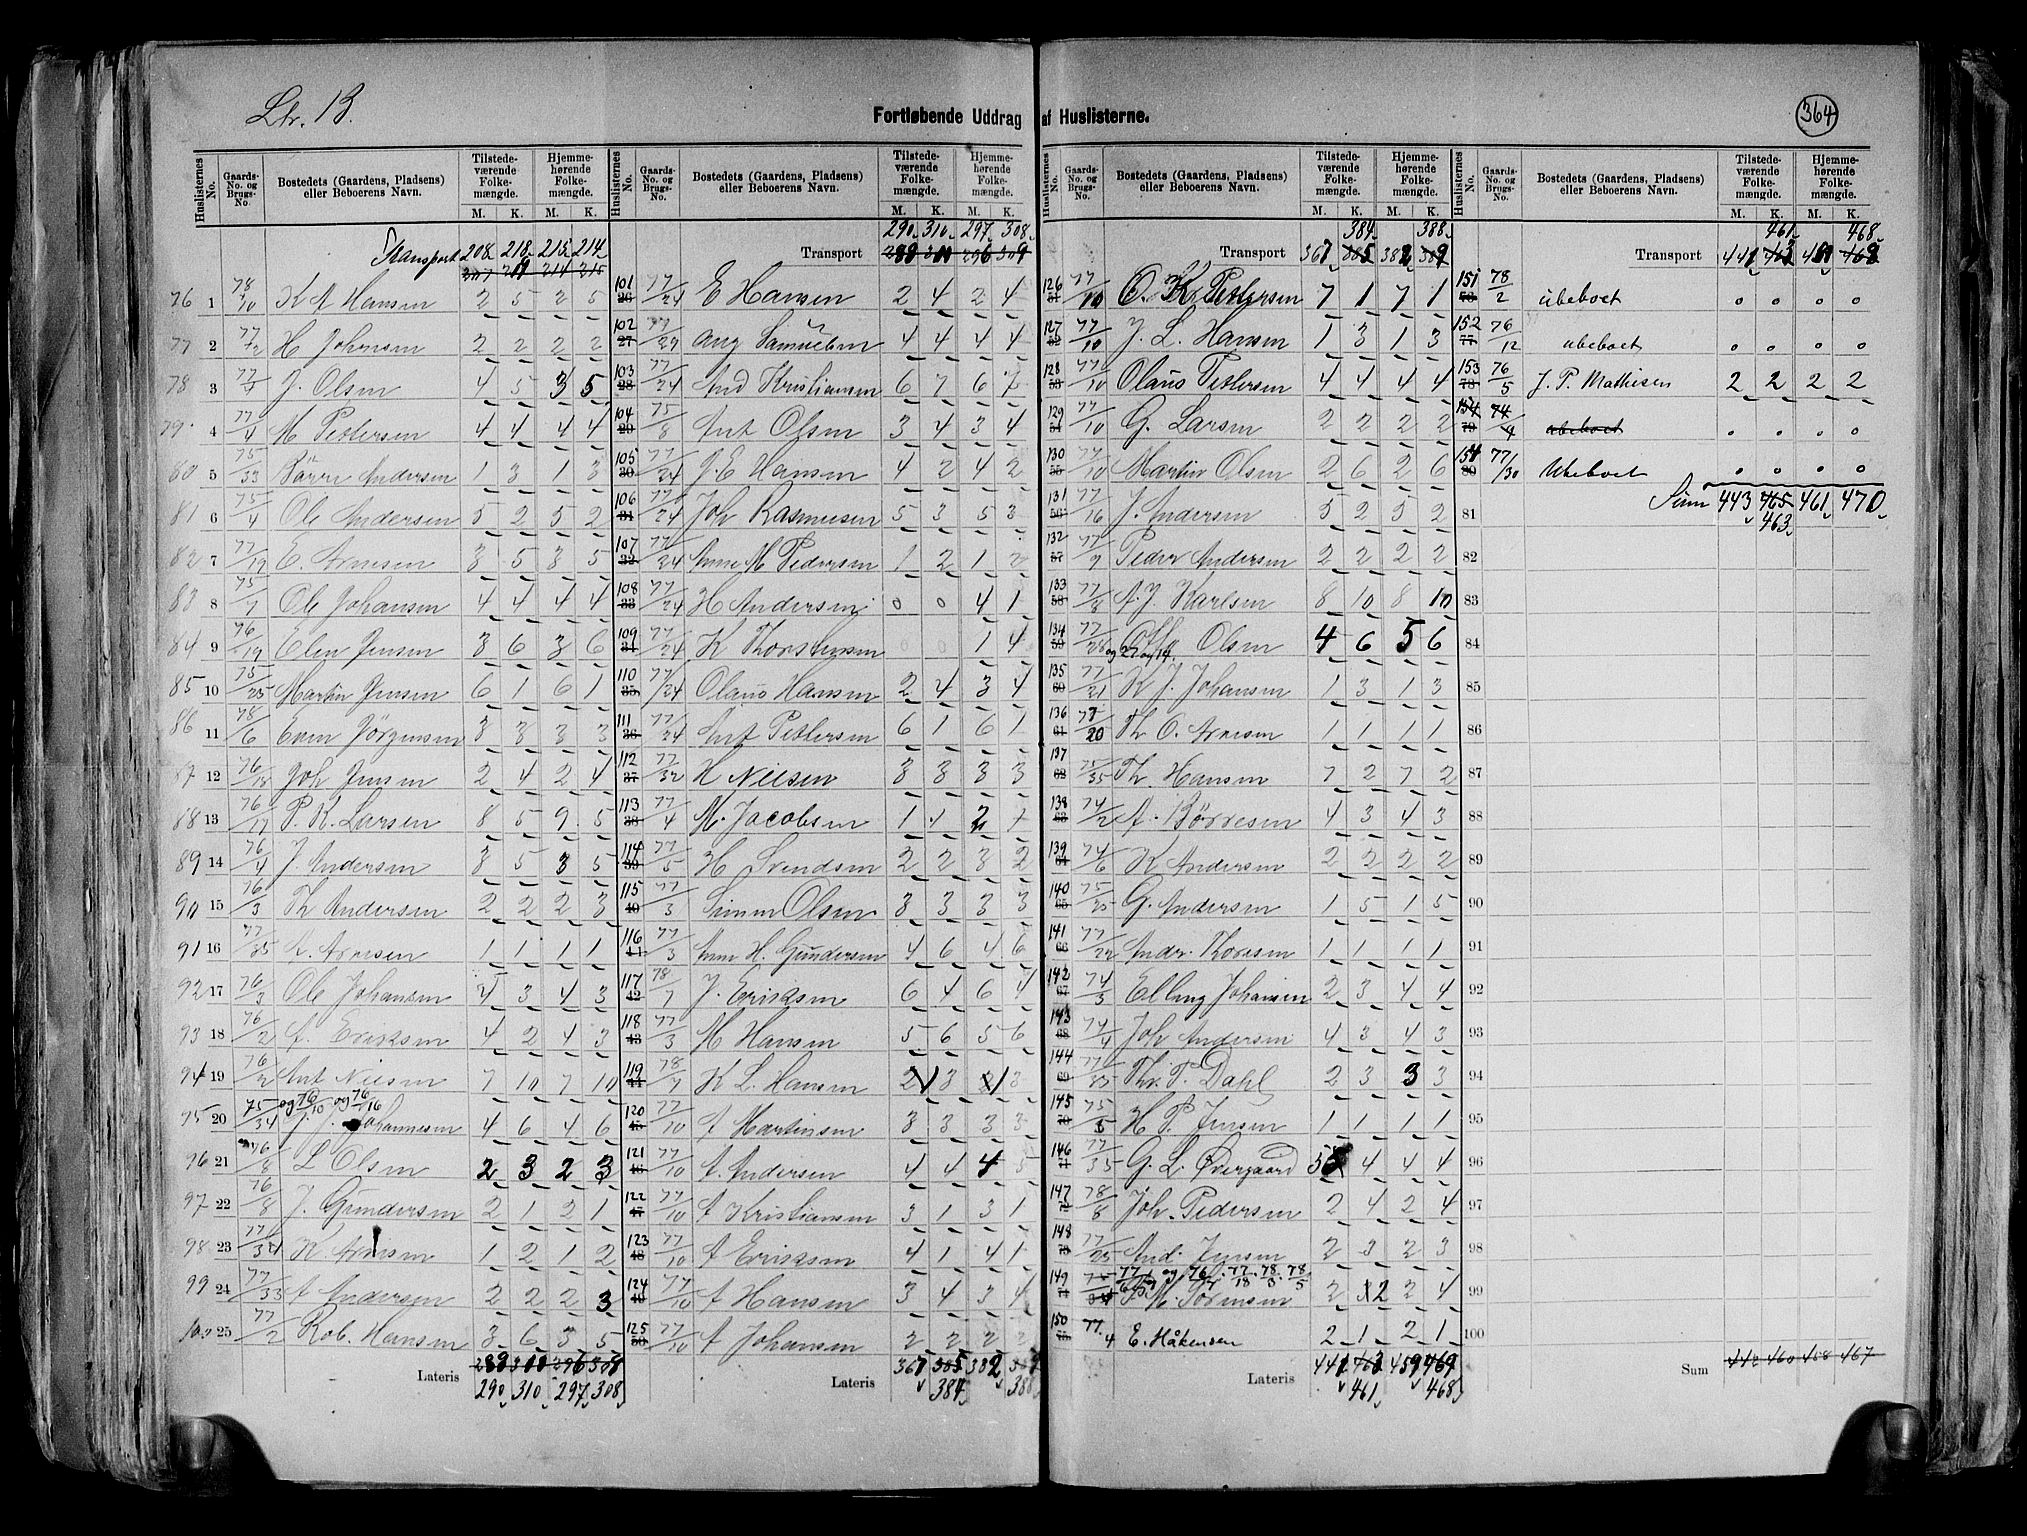 Ltr. B.
Fortløbende Uddrag af Huslisterne.
364
Huslisternes No. Gaards-No. og Brugs-No. Bostedets (Gaardens, Pladsens) eller Beboerens Navn. Tilstedeværende Folkemængde. M. K. Hjemmehørende Folkemængde. M. K.
Transport 208 218 215 214
76 1 78/10 K A Hansen 2 5 2 5
77 2 77/2 H Johnsen 2 2 2 2
78 3 J. Olsen 4 5 3 5
79 4 77/4 M Pettersen 4 4 4 4
80 5 75/33 Andersen 1 3 1 3
81 6 75/4 Ole Andersen 5 2 5 2
82 7 77/19 E. Arnesen 3 5 3 5
83 8 75/7 Ole Johansen 4 4 4 4
84 9 76/19 Elen Jensen 3 6 3 6
85 10 75/25 Martin Jensen 6 1 6 1
86 11 78/6 Even Jörgensen 3 3 3 3
87 12 76/18 Joh Jensen 2 4 2 4
88 13 76/17 P. K. Larsen 8 5 9 5
89 14 76/4 J. Andersen 3 5 3 5
90 15 76/3 Th Andersen 2 2 2 3
91 16 77/35 A. Arnesen 1 1 1 1
92 17 76/3 Ole Johansen 4 3 4 3
93 18 76/2 A. Eriksen 4 2 4 3
94 19 76/2 Ant Nilsen 7 10 7 10
95 20 75/34 og 76/10 og 76/16 J. J. Johannesen 4 6 4 6
96 21 76/8 L Olsen 2 3 2 3
97 22 76/8 J. Gundersen 2 1 2 1
98 23 77/34 K Arnesen 1 2 1 2
99 24 77/33 A Andersen 2 2 2 3
100 25 77/2 Rob. Hansen 3 6 3 5
Lateris 290 310 297 308
Huslisternes No. Gaards-No. og Brugs-No. Bostedets (Gaardens, Pladsens) eller Beboerens Navn. Tilstedeværende Folkemængde. M. K. Hjemmehørende Folkemængde. M. K.
Transport 290 310 297 308
101 77/24 E Hansen 2 4 2 4
102 77/29 Aug Samuelsen 4 4 4 4
103 77/24 And Kristiansen 6 7 6 7
104 75/8 Ant Olsen 3 4 3 4
105 77/24 J. E Hansen 4 2 4 2
106 77/24 Joh Rasmusen 5 3 5 3
107 77/24 Anne M Pedersen 1 2 1 2
108 77/24 H Andersen 0 0 4 1
109 77/24 K Thorstensen 0 0 1 4
110 77/24 Olaus Hansen 2 4 3 4
111 77/24 Ant Pettersen 6 1 6 1
112 77/32 H Nilsen 3 3 3 3
113 77/4 M. Jacobsen 1 1 2 1
114 77/5 H Svendsen 2 2 3 2
115 77/3 Simen Olsen 3 3 3 3
116 77/3 Anne H. Gundersen 4 6 4 6
117 78/7 J. Eriksen 6 4 6 4
118 77/3 M Hansen 5 6 5 6
119 78/7 K L. Hansen 2 3 3
120 77/10 A Martinsen 3 3 3 3
121 77/10 A. Andersen 4 4 4 5
122 77/10 A Kristiansen 3 1 3 1
123 77/10 A Eriksen 4 1 4 1
124 77/10 A Hansen 3 4 3 4
125 77/10 A Johansen 2 2 2 2
Lateris 367 384 382 388
Huslisternes No. Gaards-No. og Brugs-No. Bostedets (Gaardens, Pladsens) eller Beboerens Navn. Tilstedeværende Folkemængde. M. K. Hjemmehørende Folkemængde. M. K.
Transport 367 384 382 388
126 77/10 O. K. Pettersen 7 1 7 1
127 77/10 J. L. Hansen 1 3 1 3
128 77/10 Olaus Pettersen 4 4 4 4
129 77/10 G. Larsen 2 2 2 2
130 77/10 Martin Olsen 2 6 2 6
131 77/16 J. Andersen 5 2 5 2
132 77/9 Peder Andersen 2 2 2 2
133 77/8 A. J. Karlsen 8 10 8 10
134 77/28 Otto Olsen 4 6 5 6
135 77/21 K J. Johansen 1 3 1 3
136 77/20 Th. O. Arnesen 1 1 1 1
137 75/35 Th. Hansen 7 2 7 2
138 74/2 A. Börresen 4 3 4 3
139 74/6 K Andersen 2 2 2 2
140 75/25 G. Andersen 1 5 1 5
141 77/22 Andr. Thoresen 1 1 1 1
142 74/3 Elling Johansen 2 3 4 4
143 74/4 Joh Andersen 4 3 4 3
144 77 Thr. T. Dahl 2 3 3 3
145 75/5 H P. Jensen 1 1 1 1
146 77/35 G. L. Övergaard 5 4 4 4
147 78/8 Joh. Pedersen 2 4 2 4
148 77/25 And. Jensen 2 3 2 3
149 77/6 og 76 77/18 78/3 78/5 M. Sörensen 3 2 3 4
150 77/4 E. Håkensen 2 1 2 1
Lateris 441 461 459 468
Huslisternes No. Gaards-No. og Brugs-No. Bostedets (Gaardens, Pladsens) eller Beboerens Navn. Tilstedeværende Folkemængde. M. K. Hjemmehørende Folkemængde. M. K.
Transport 441 461 459 468
151 78/2 ubeboet 0 0 0 0
152 76/12 ubeboet 0 0 0 0
153 76/5 J. P. Mathisen 2 2 2 2
154 74/4 ubeboet 0 0 0 0
154 77/30 Ubeboet 0 0 0 0
Sum 443 465 461 470
463
81
82
83
84
85
86
87
88
89
90
91
92
93
94
95
96
97
98
99
100
Sum 442 460 458 467